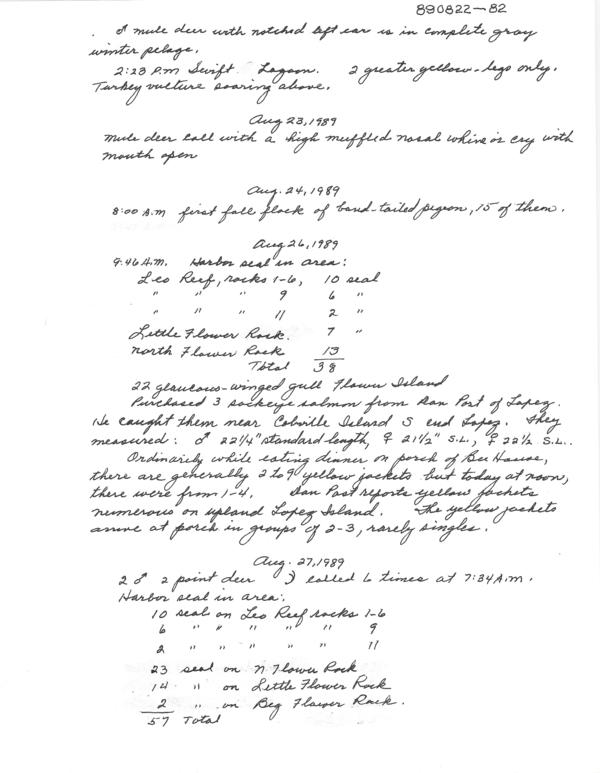 890822-82
A mule deer with notched left ear is in complete gray
winter pelage.
2:23 P.m Swift Lagoon. 2 greater yellow-legs only.
Turkey vulture soaring above.
Aug 23, 1989
mule deer call with a high muffled nasal whine or cry with
mouth open
Aug. 24, 1989
8:00 A.m first fall flock of band-tailed pigeon, 15 of them.
Aug 26, 1989
9:46 A.m. Harbor seal in area:
Leo Reef, rocks 1-6, 10 seal
" " " 9 6 "
" " " 11 2 "
Little Flower Rock. 7 "
North Flower Rock 13
Total 38
22 glaucous-winged gull Flower Island
Purchased 3 sockeye salmon from Dan Post of Lopez.
He caught them near Colville Island S end Lopez. They
measured: ♂ 22 1/4" standard length, ♀ 21 1/2" S.L., ♀ 22 1/2 S.L..
Ordinarily while eating dinner on porch of Bee House,
there are generally 2 to 9 yellow jackets but today at noon,
there were from 1-4. Dan Post reports yellow jackets
numerous on upland Lopez Island. The yellow jackets
arrive at porch in groups of 2-3, rarely singles.
Aug. 27, 1989
2 ♂ 2 point deer ) called 6 times at 7:34 A.m.
Harbor seal in area:
10 seal on Leo Reef rocks 1-6
6 " " " " " 9
2 " " " " " 11
23 seal on N Flower Rock
14 " on Little Flower Rock
2 " on Big Flower Rock.
57 Total